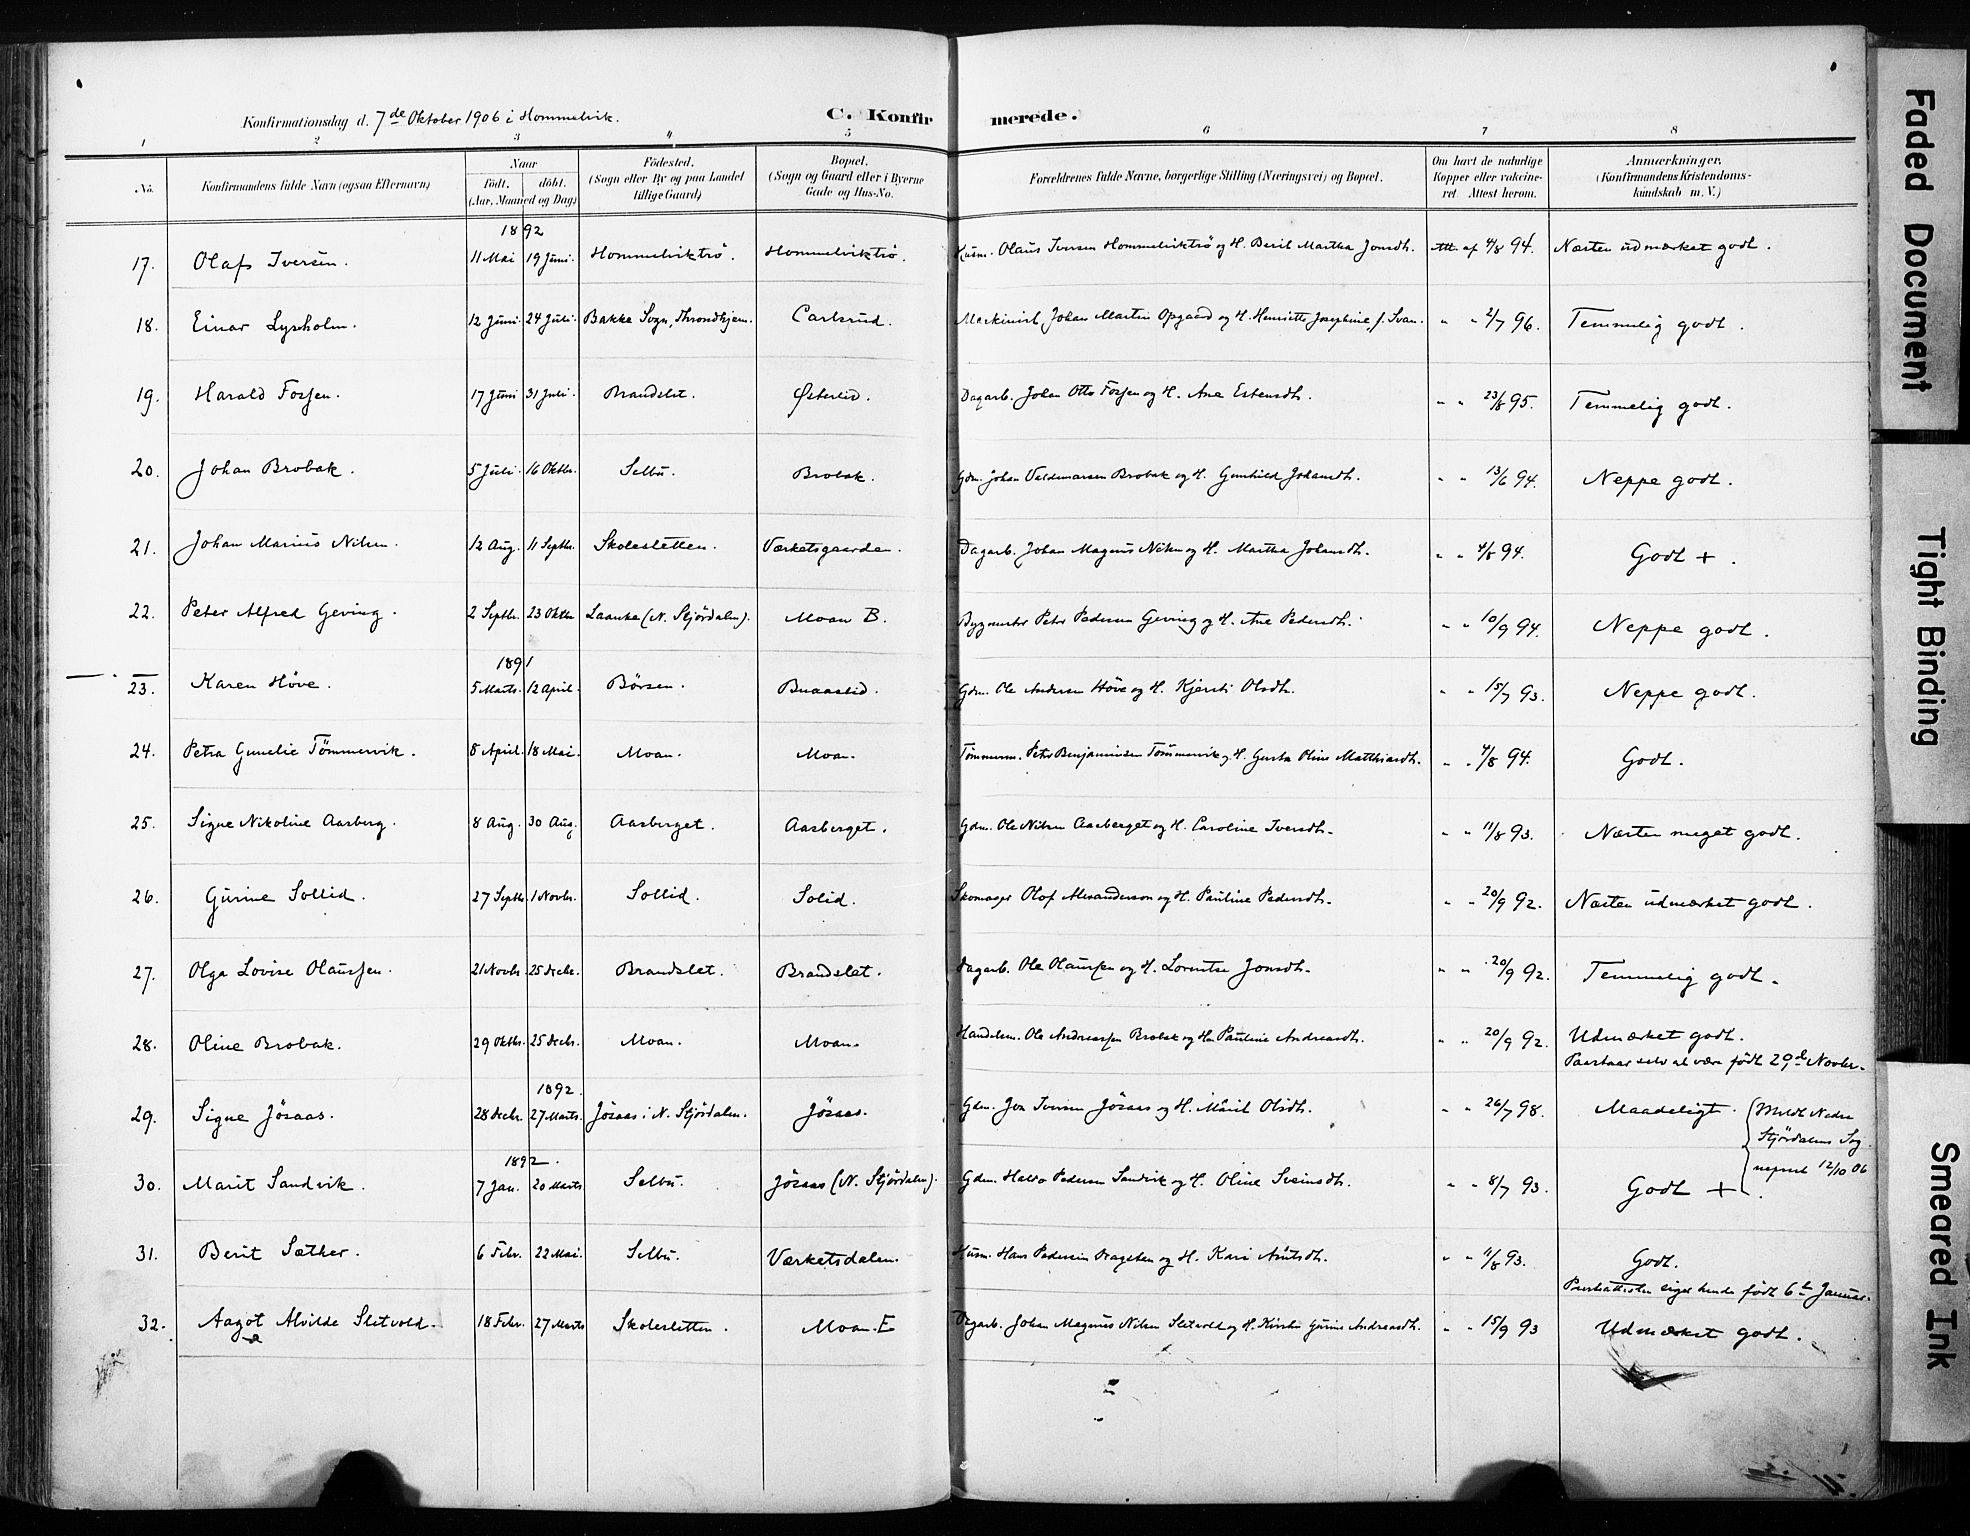 Konfirmationsdag d. 7de Oktober 1906 i Hommelvik.
C. Konfir merede.
1 2 3 4 5 6 7 8
No. Konfirmandens fulde Navn (ogsaa Efternavn) Naar födt. döbt. (Aar, Maaned og Dag) Födested. (Sogn eller By og paa Landet tillige Gaard) Bopæl. (Sogn og Gaard eller i Byerne Gade og Hus-No. Forældrenes fulde Navne, borgerlige Stilling (Næringsvei) og Bopæl. Om havt de naturlige Kopper eller vakcineret. Attest herom. Anmærkninger. (Konfirmandens Kristendomskundskab m. V.)
1892
17. Olaf Iversen. 11 Mai 19 Juni. Hommelviktrö. Hommelviktrö. Husm. Olaus Iversen Hommelviktrö og H. Berit Martha Jonsdt. Att. af 4/8 94. Næsten udmærket godt.
18. Einar Lysholm. 12 Juni. 24 Juli. Bakke Sogn, Throndhjem. Carlsrud. Maskinist Johan Martin Opgaard og H. Henriette Josephine, f. Svan. " " 2/7 96. Temmelig godt.
19. Harald Fossen. 17 Juni 31 Juli. Brandslet. Østerlid. Dagarb. Johan Otto Fossen og H. Ane Estensdt. " " 23/8 95. Temmelig godt.
20. Johan Brobak. 5 Juli. 16 Oktbr. Selbu. Brobak. Gdm. Johan Valdemarsen Brobak og H. Gunhild Johansdt. " " 13/6 94. Neppe godt.
21. Johan Marius Nilsen. 12 Aug. 11 Septbr. Skolesletten. Værketsgaarden. Dagarb. Johan Magnus Nilsen og H. Martha Johansdt. " " 4/8 94. Godt +.
22. Peter Alfred Geving. 2 Septbr. 23 Oktbr. Laanke (N. Stjördalen). Moan B. Bygmester Peter Pedersen Geving og H. Ane Pedersdt. " " 10/9 94. Neppe godt.
1891
23. Karen Höve. 5 Marts. 12 April. Börsen. Buaaslid. Gdm. Ole Andersen Höve og H. Kjersti Olsdt. " " 15/7 93. Neppe godt.
24. Petra Gunelie Tömmervik. 8 April. 18 Mai. Moan. Moan. Tömmerm. Peter Benjaminsen Tömmervik og H. Gusta Oline Matthiasdt. " " 4/8 94. Godt.
25. Signe Nikoline Aasberg. 8 Aug. 30 Aug. Aasberget. Aasberget. Gdm. Ole Nilsen Aasberget og H. Caroline Iversdt. " " 11/8 93. Næsten meget godt.
26. Gurine Sollid. 27 Septbr. 1 Novbr. Sollid. Solid. Skomager Olof Alexanderson og H. Pauline Pedersdt. " " 20/9 92. Næsten udmærket godt.
27. Olga Lovise Olaussen. 21 Novbr. 25 Decbr. Brandslet. Brandslet. Dagarb. Ole Olaussen og H. Lorentse Jonsdt. " " 20/9 92. Temmelig godt.
28. Oline Brobak. 29 Oktbr. 25 Decbr. Moan. Moan. Handelsm. Ole Andreassen Brobak og H. Pauline Andreasdt. " " 20/9 92. Udmærket godt.
Paastaar selv at være født 29de Novbr.
1892.
29. Signe Jösaas. 28 Decbr. 27 Marts. Jösaas i N. Stjördalen. Jösaas. Gdm. Jon Iversen Jösaas og H. Marit Olsdt. " " 26/7 98. Maadeligt. Meldt Nedre
Stjördalens Sog
1892.
30. Marit Sandvik. 7 Jan. 20 Marts Selbu. Jösaas (N. Stjördalen). Gdm. Haldo Pedersen Sandvik og H. Oline Sveinsdt. " " 8/7 93. Godt +. neprest 12/10 06
31. Berit Sæther. 6 Febr. 22 Mai. Selbu. Værketsdalen. Husm. Hans Pedersen og H. Kari Arntsdt. " " 11/8 93. Godt.
Presteattesten siger hende født 6te Januar.
32. Aagot Alvilde Sletvold. 18 Febr. 27 Marts Skolesletten. Moan. E Dagarb. Johan Magnus Nilsen Sletvold og H. Kirstin Gurine Andreasdt. " " 15/9 93 Udmærket godt.
Faded Document
Tight Binding
Smeared Ink